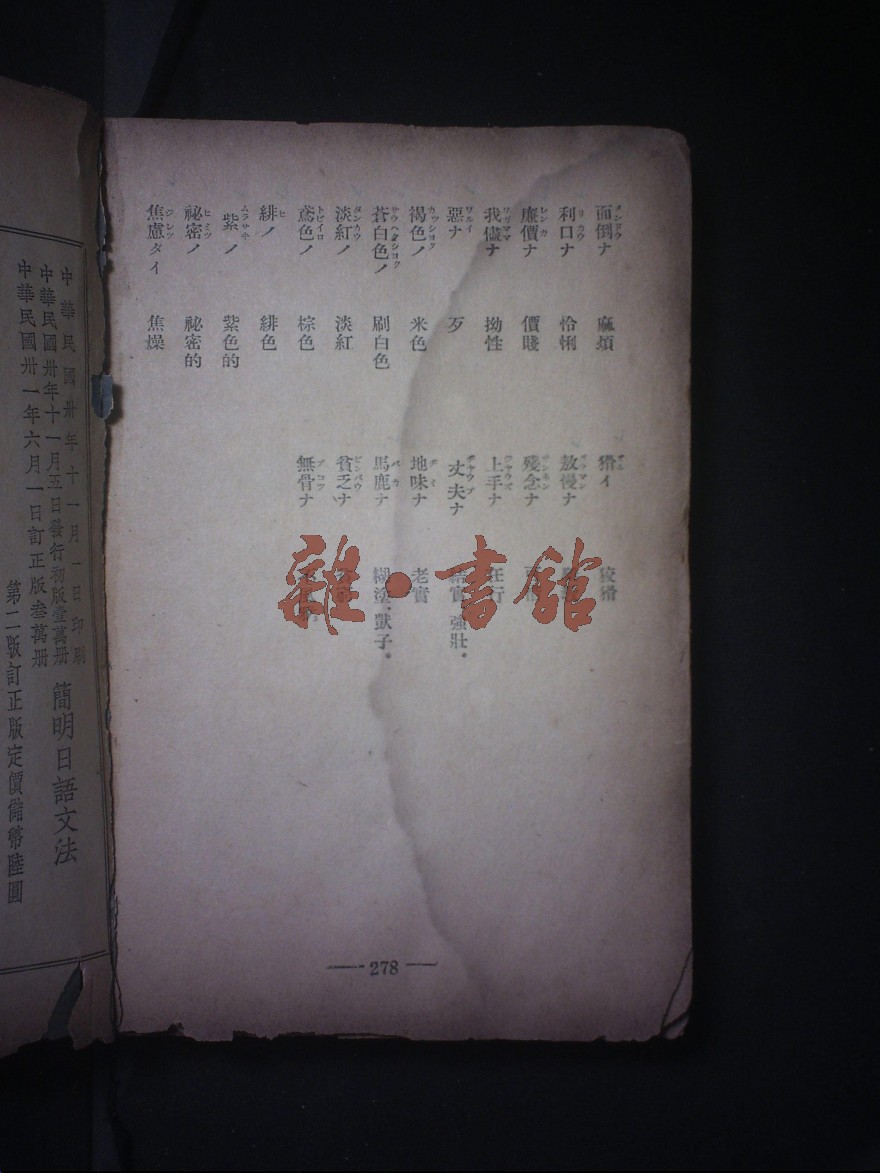 面倒ナ 麻煩
利口ナ 怜悧
廉價ナ 價賤
我儘ナ 拗性
惡ナ 歹
褐色ノ 米色
蒼白色ノ 刷白色
淡紅ノ 淡紅
鳶色ノ 棕色
緋ノ 緋色
紫ノ 紫色的
祕密ノ 祕密的
焦慮タイ 焦燥
猾イ 狡猾
敖慢ナ
殘念ナ
上手ナ 在行
丈夫ナ 結實，強壯.
地味ナ 老實
馬鹿ナ 糊塗，獃子.
貧乏ナ
無骨ナ
278
雜·書館
中華民國卅年十一月一日印刷
中華民國卅年十一月五日發行初版壹萬册
中華民國卅一年六月一日訂正版叁萬册
簡明日語文法
第二版訂正版定價備幣陸圓